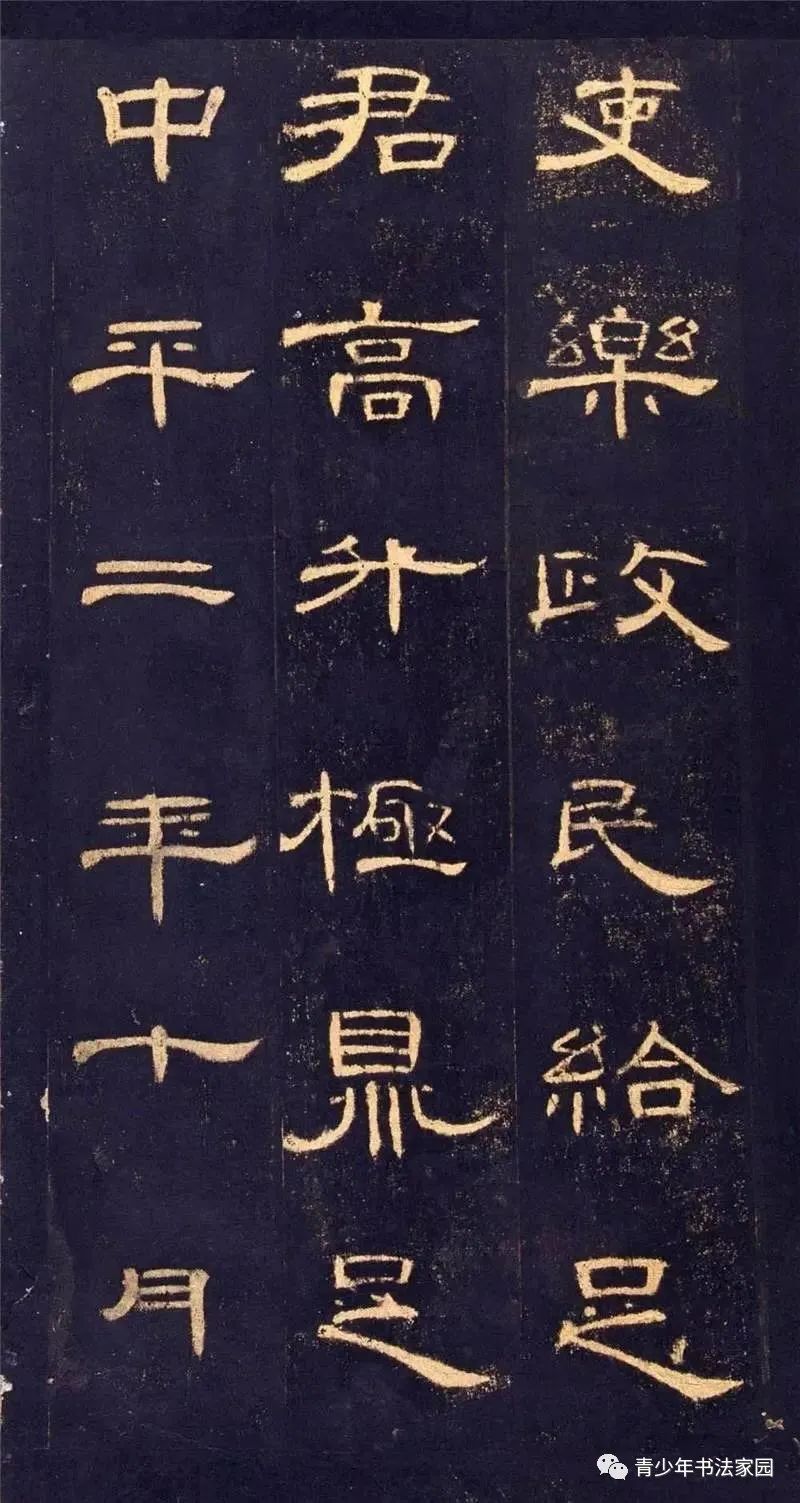 吏樂政民給足
君高升極鼎足
中平二年十月
青少年书法家园